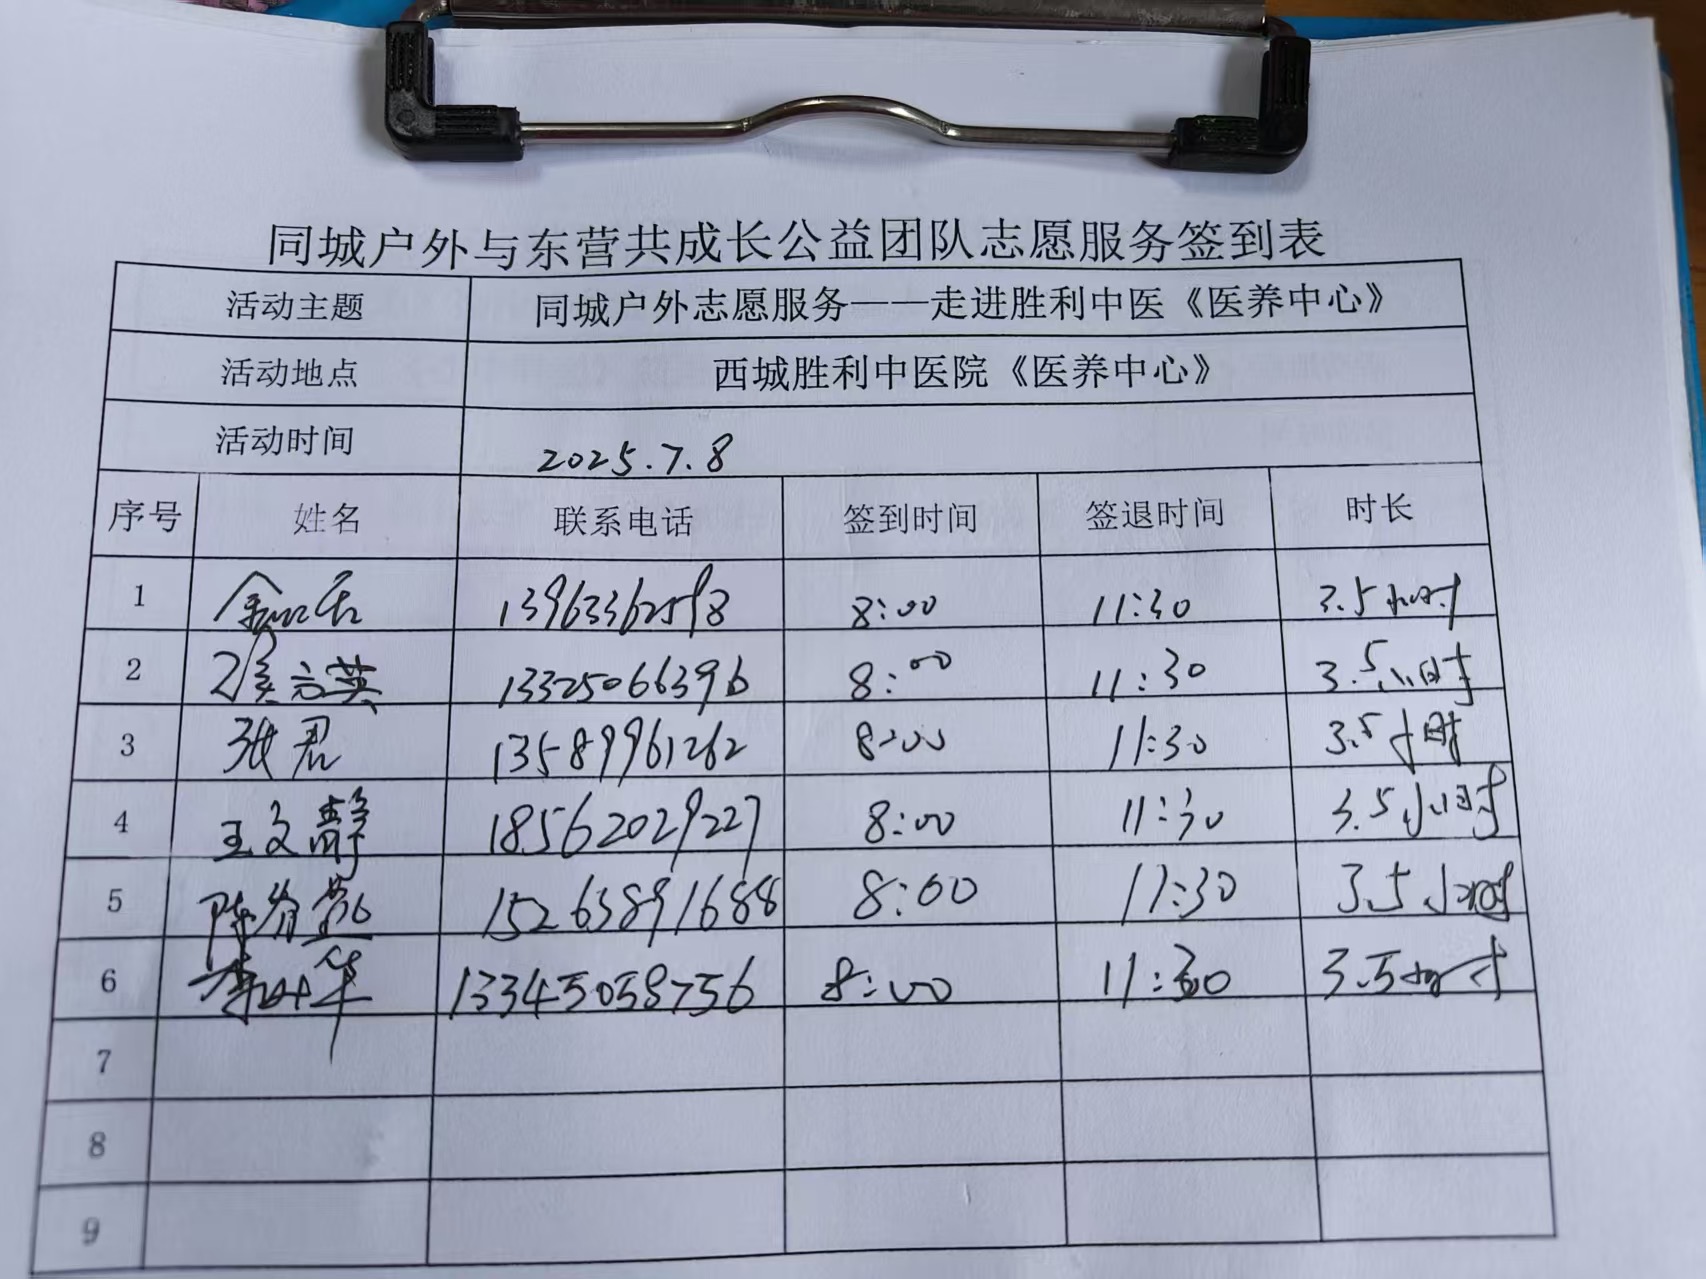 同城户外与东营共成长公益团队志愿服务签到表
活动主题 同城户外志愿服务——走进胜利中医《医养中心》
活动地点 西城胜利中医院《医养中心》
活动时间 2025.7.8
序号 姓名 联系电话 签到时间 签退时间 时长
1 13963362598 8:00 11:30 3.5小时
2 侯立英 13325066396 8:00 11:30 3.5小时
3 张君 13589961262 8:00 11:30 3.5小时
4 王文静 18562029227 8:00 11:30 3.5小时
5 15263891688 8:00 11:30 3.5小时
6 13345058756 8:00 11:30 3.5小时
7
8
9